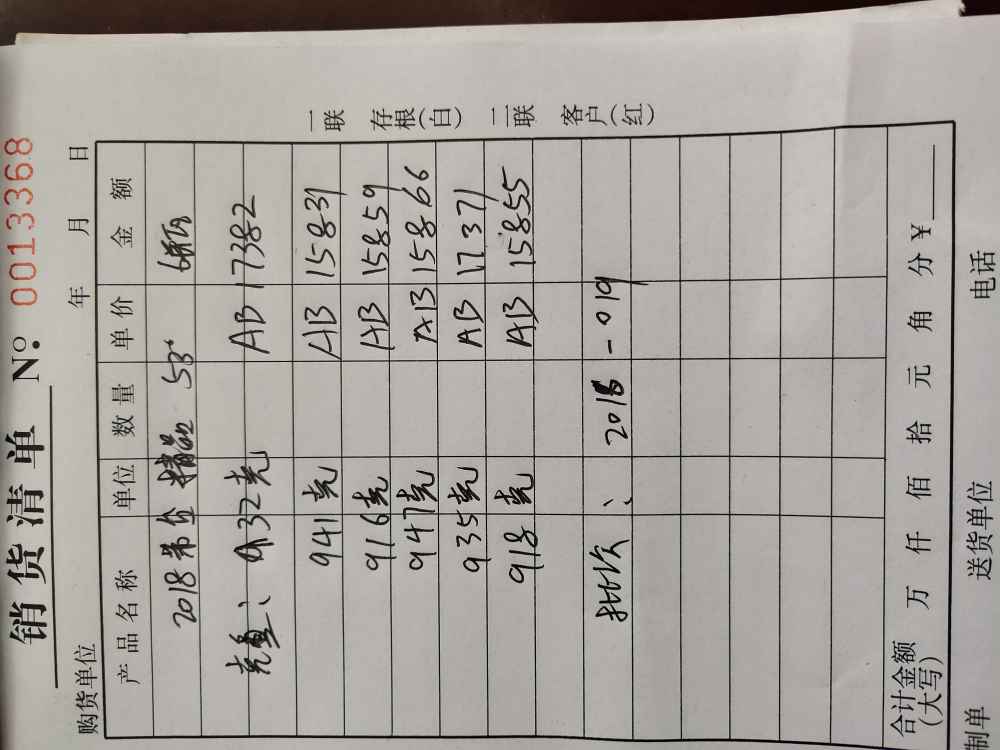 销货清单 №. 0013368
购货单位 年 月 日
产品名称 单位 数量 单价 金额
2018 茅台 精品 53° 6瓶
克重: 932克 AB 17382
941克 AB 15831
916克 AB 15859
947克 AB 15866
935克 AB 17371
918克 AB 15855
批次: 2018-019
合计金额(大写) 万 仟 佰 拾 元 角 分 ¥
制单 送货单位 电话
一联 存根(白) 二联 客户(红)